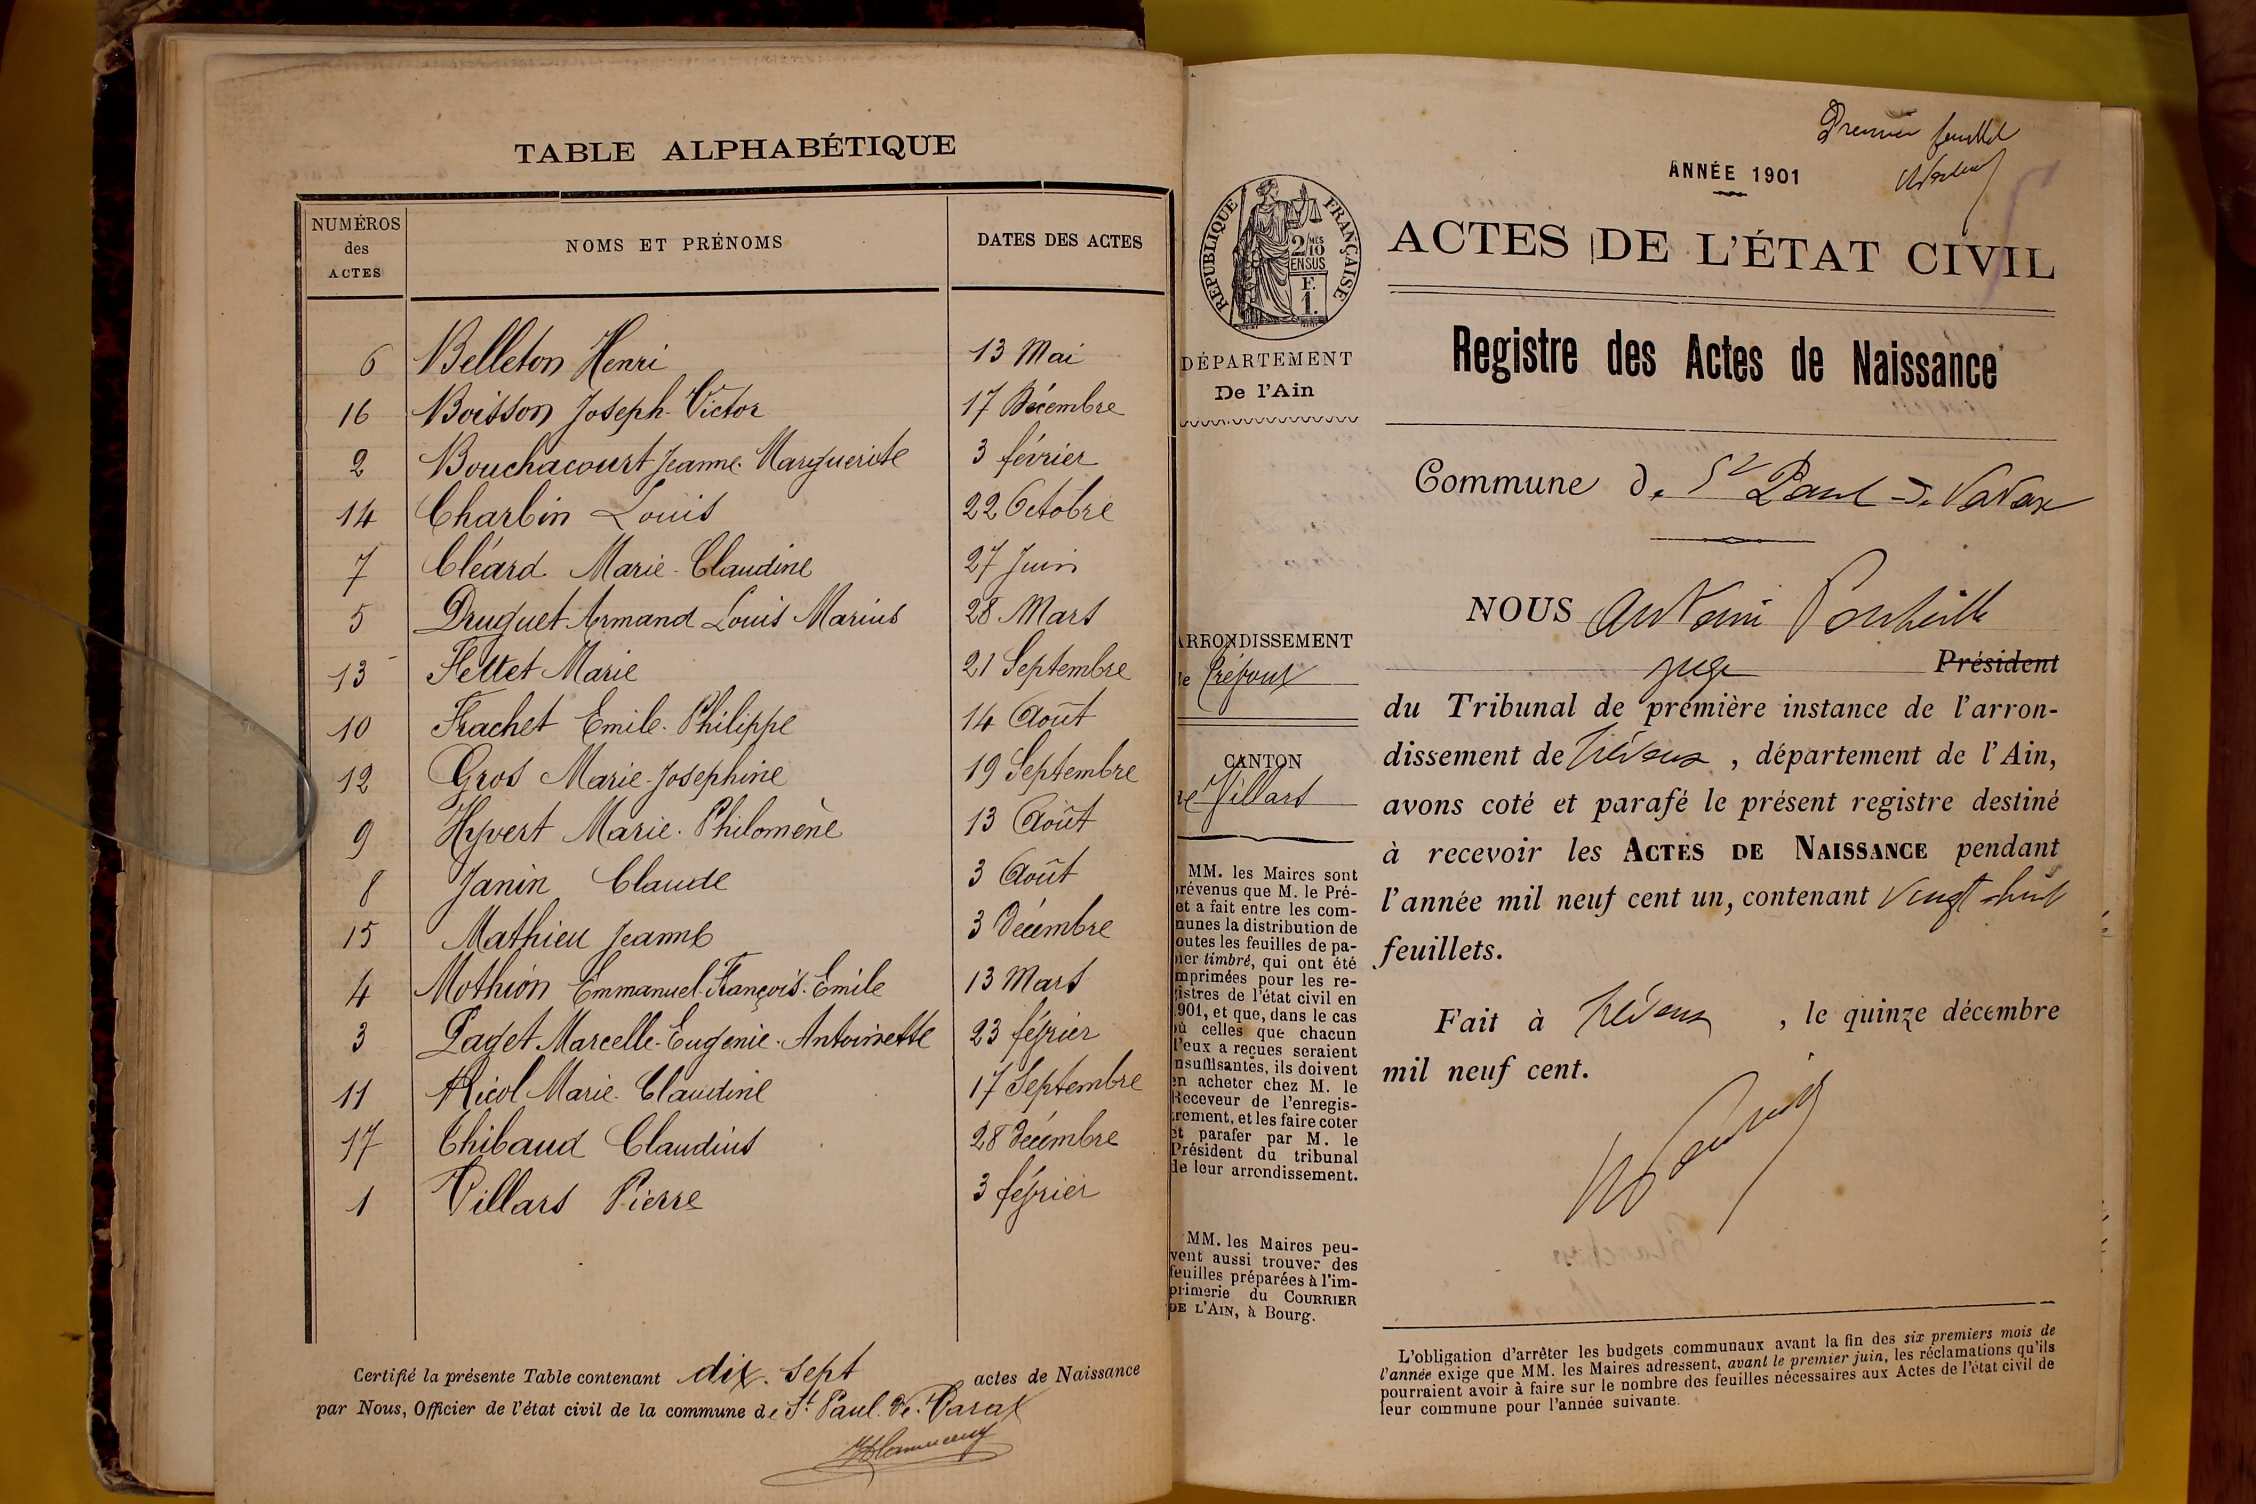 TABLE ALPHABÉTIQUE
NUMÉROS des ACTES NOMS ET PRÉNOMS DATES DES ACTES
6 Belleton Henri 13 Mai
16 Boisson Joseph-Victor 17 Décembre
2 Bouchacourt Jeanne-Marguerite 3 février
14 Charbin Louis 22 Octobre
7 Cléard Marie-Claudine 27 Juin
5 Druguet Armand Louis Marius 28 Mars
13 Flettet Marie 21 Septembre
10 Frachet Emile-Philippe 14 Août
12 Gros Marie-Josephine 19 Septembre
9 Hyvert Marie-Philomène 13 Août
8 Janin Claude 3 Août
15 Mathieu Jeanne 3 Décembre
4 Mothion Emmanuel-François-Emile 13 Mars
3 Paget Marcelle-Eugenie-Antoinette 23 février
11 Ricol Marie-Claudine 17 Septembre
17 Thibaud Claudius 28 Décembre
1 Villars Pierre 3 février
Certifié la présente Table contenant dix-sept actes de Naissance
par Nous, Officier de l'état civil de la commune de St Paul-de-Varax
Premier feuillet
ANNÉE 1901
ACTES DE L'ÉTAT CIVIL
RÉPUBLIQUE FRANÇAISE
2 MES
10
EN SUS
F.
1.
DÉPARTEMENT
De l'Ain
ARRONDISSEMENT
de Trévoux
CANTON
de Villars
MM. les Maires sont
prévenus que M. le Pré-
et a fait entre les com-
munes la distribution de
toutes les feuilles de pa-
pier timbré, qui ont été
imprimées pour les re-
gistres de l'état civil en
1901, et que, dans le cas
où celles que chacun
d'eux a reçues seraient
insuffisantes, ils doivent
en acheter chez M. le
Receveur de l'enregis-
trement, et les faire coter
et parafer par M. le
Président du tribunal
de leur arrondissement.
MM. les Maires peu-
vent aussi trouver des
feuilles préparées à l'im-
primerie du COURRIER
DE L'AIN, à Bourg.
Registre des Actes de Naissance
Commune de St Paul de Varax
NOUS Antoine
juge Président
du Tribunal de première instance de l'arron-
dissement de Trévoux, département de l'Ain,
avons coté et parafé le présent registre destiné
à recevoir les ACTES DE NAISSANCE pendant
l'année mil neuf cent un, contenant vingt-huit
feuillets.
Fait à Trévoux, le quinze décembre
mil neuf cent.
L'obligation d'arrêter les budgets communaux avant la fin des six premiers mois de
l'année exige que MM. les Maires adressent, avant le premier juin, les réclamations qu'ils
pourraient avoir à faire sur le nombre des feuilles nécessaires aux Actes de l'état civil de
leur commune pour l'année suivante.